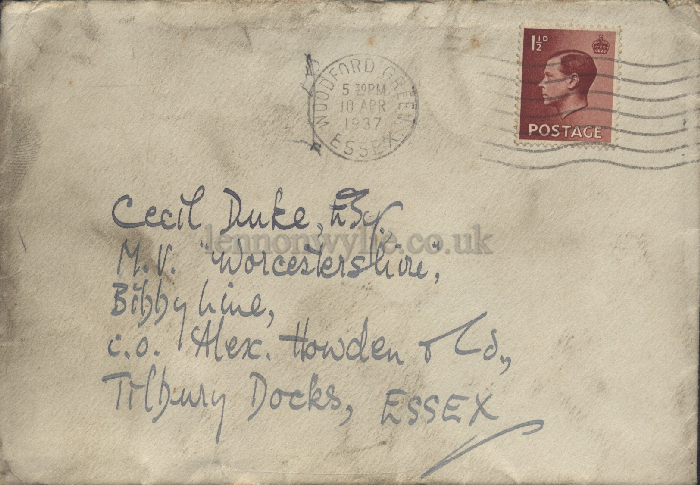 1½D
POSTAGE
WOODFORD GREEN
5 30PM
10 APR
1937
ESSEX
Cecil Duke, Esq.
M.V. "Worcestershire",
Bibby Line,
c.o. Alex. Howden & Co.,
Tilbury Docks, ESSEX
lennonwylie.co.uk